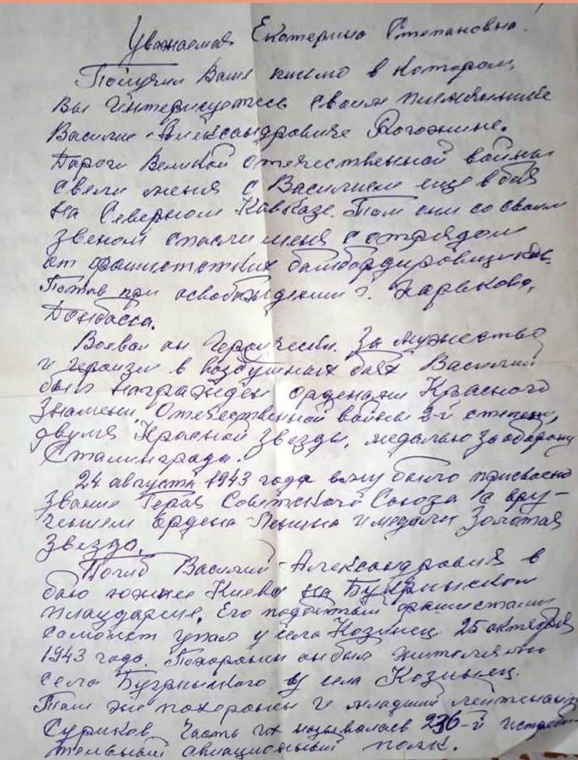 Уважаемая Екатерина Степановна.
Получил Ваше письмо в котором,
Вы интересуетесь своим племянником
Василие Александровиче Рогожине.
Дороги Великой Отечественной войны
свели меня с Василием еще в боях
на Северном Кавказе. Там они со своим
звеном спасли меня с отрядом
от фашистских бомбардировщиков.
Потом при освобождении г. Харькова,
Донбасса.
Воевал он Героически. За мужество
и героизм в воздушных боях Василий
был награжден орденами Красного
Знамени, Отечественной войны 2-й степени,
двумя Красной Звезды, медалью за оборону
Сталинграда.
24 августа 1943 года ему было присвоено
звание Героя Советского Союза с вру-
чением ордена Ленина и медали Золотая
Звезда.
Погиб Василий Александрович в
бою южнее Киева на Букринском
плацдарме. Его подбитый фашистами
самолет упал у села Козинец 25 октября
1943 года. Похоронен он был жителями
села Бугринького у села Козинец.
Там же похоронен и младший лейтенант
Суриков. Часть их называлась 236-й истреби
тельный авиационный полк.